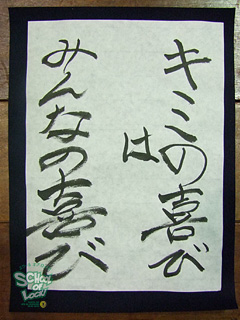 キミの喜び
は
みんなの喜び
SCHOOL
OF
LOCK!